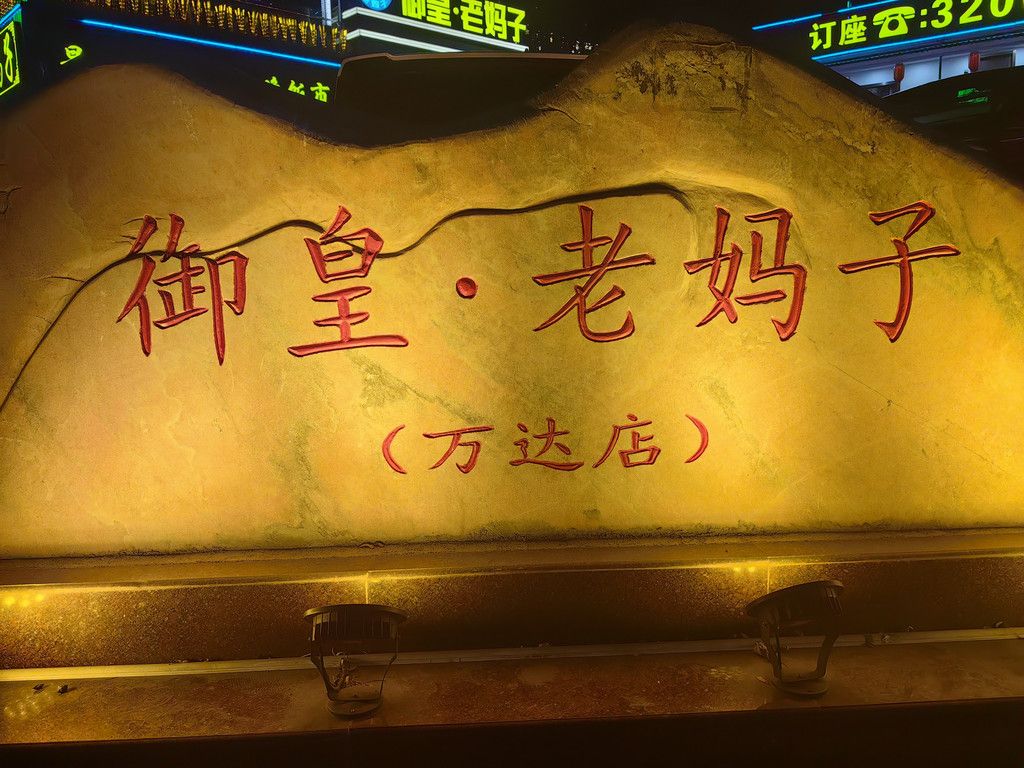 御皇·老妈子
订座☎:320
御皇·老妈子
（万达店）